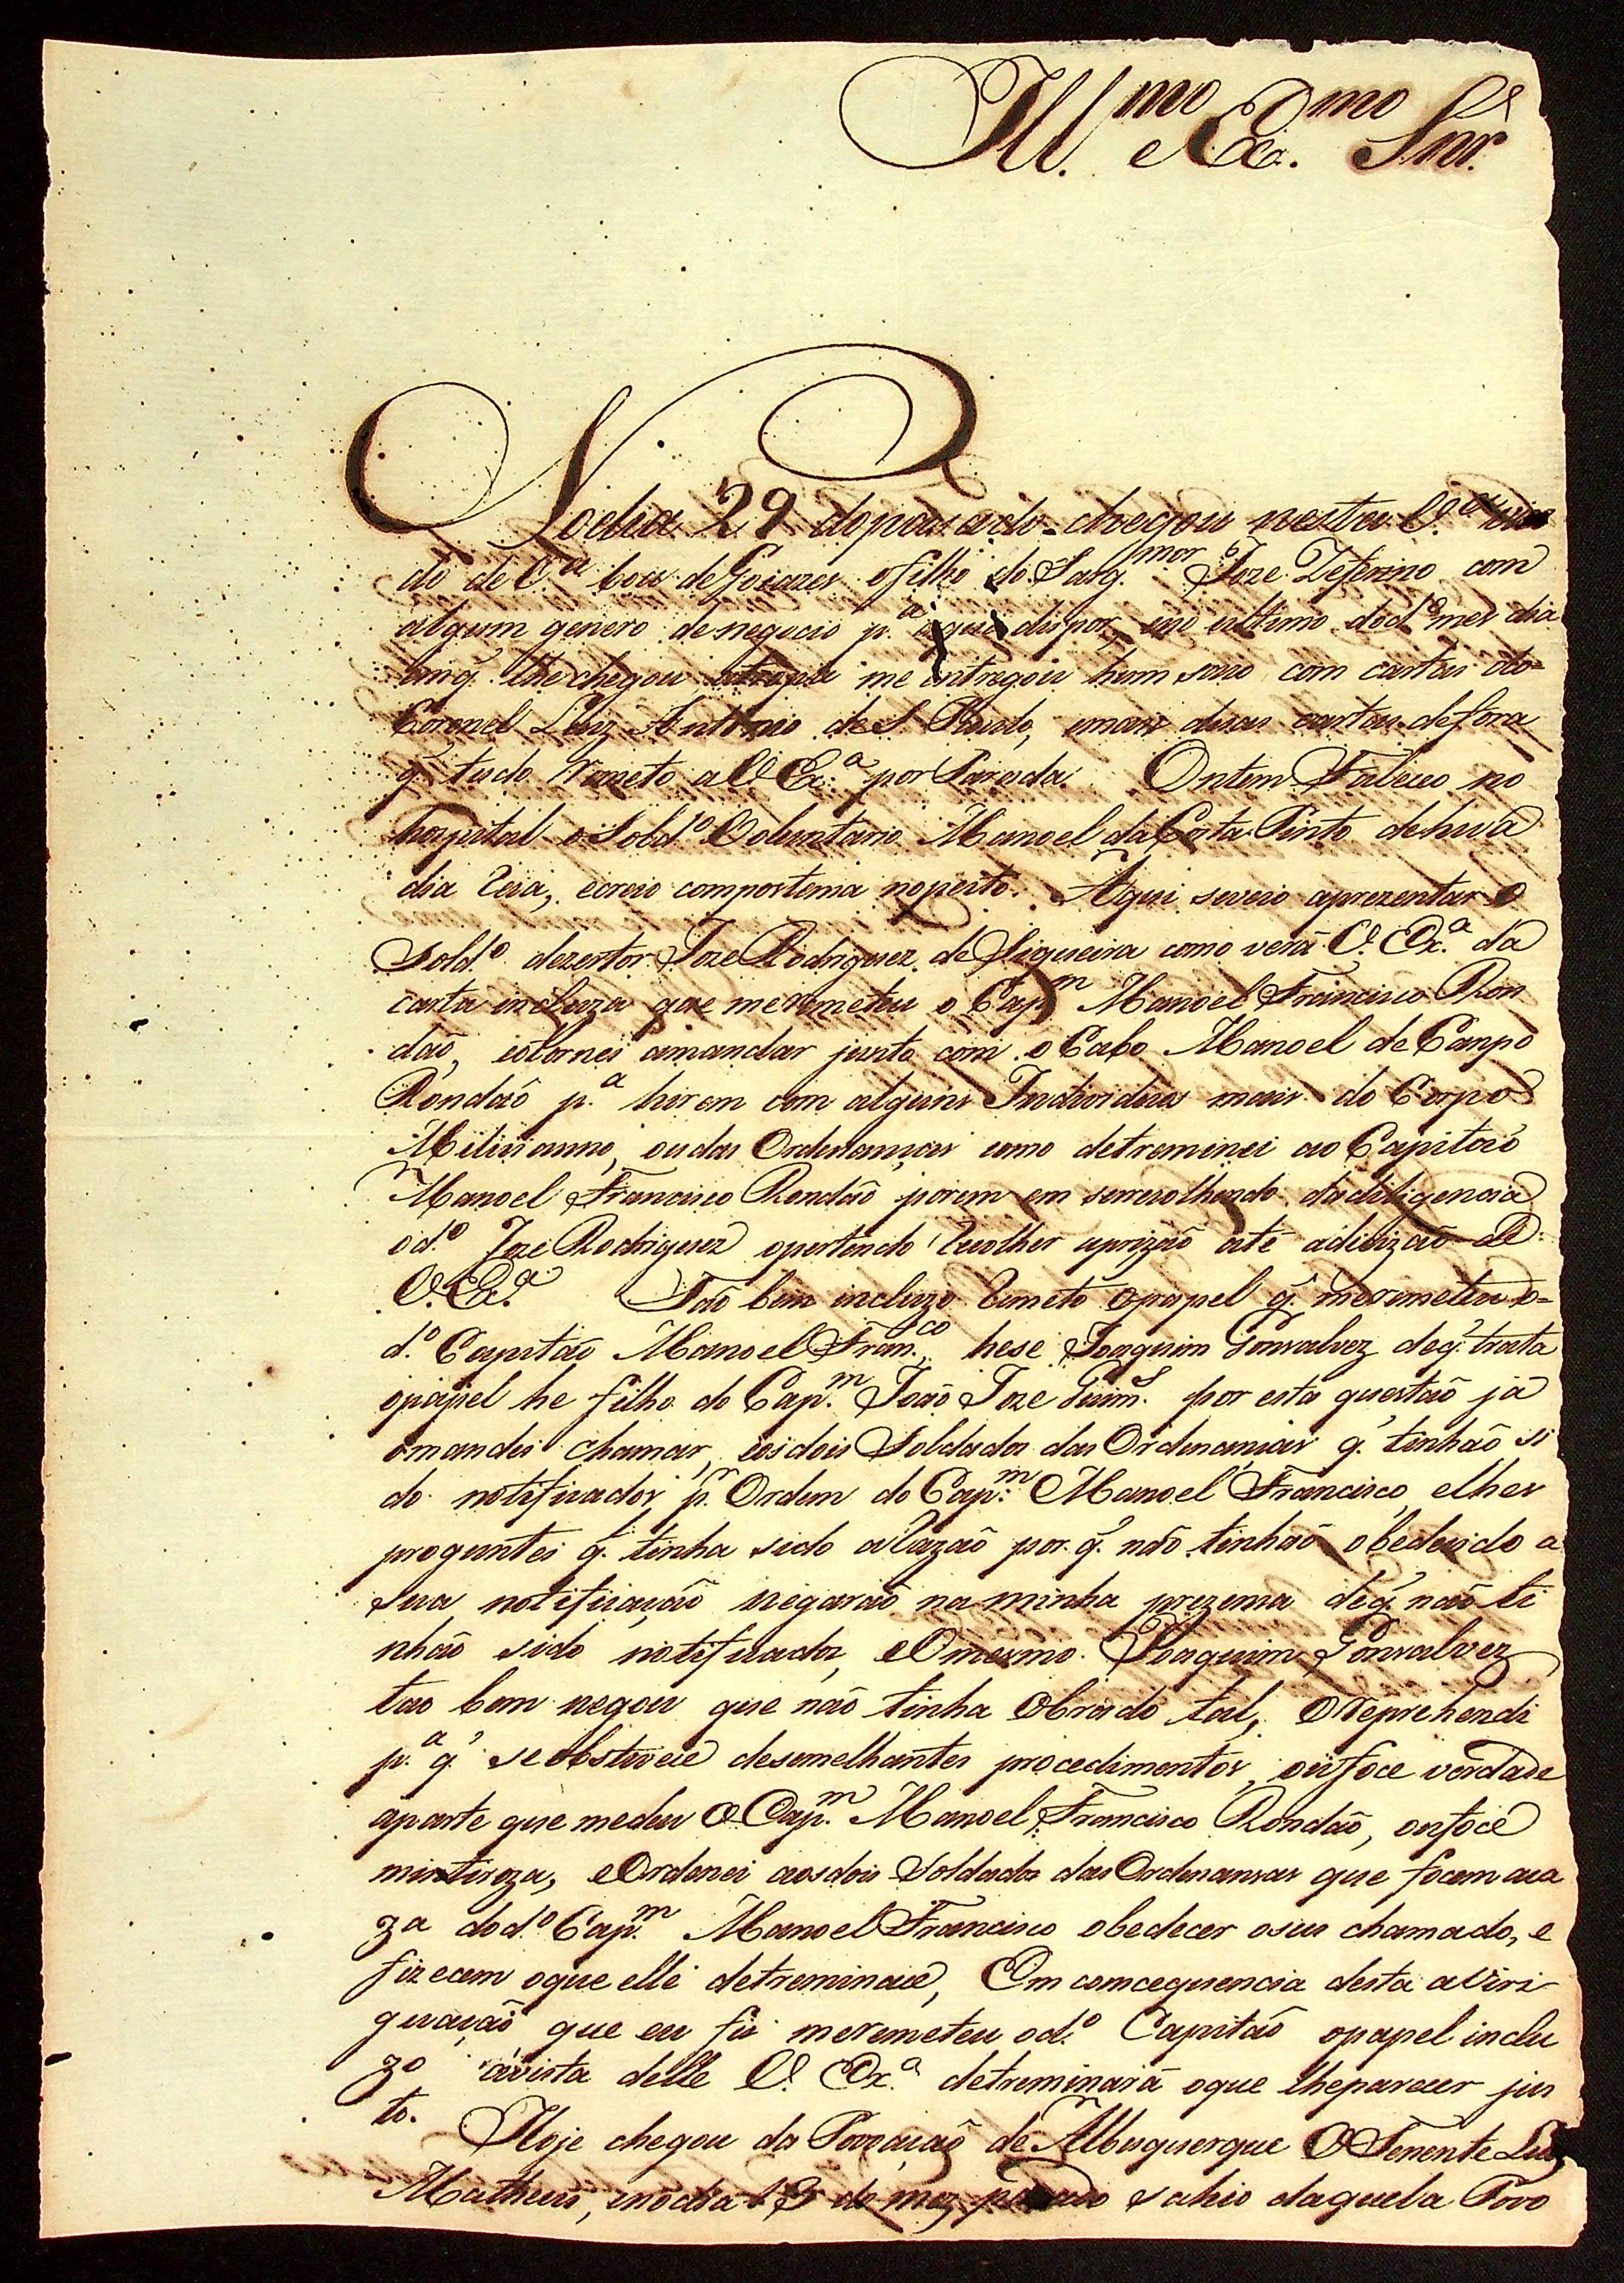 Ill.mo e Ex.mo Snr.
No dia 29 do passado chegou nesta V.a vin
do de V.a boa de Goiazes o filho do Sarg.mor Joze Zeferino com
algum genero de negocio p.a aqui dispor, e no ultimo do d.o mes dia
em q̃ lhe chegou me entregou hum saco com cartas do
Coronel Luiz Antonio de S. Paulo, e mais duas cartas de fora
q̃ tudo Remeto a V. Ex.a por Parada. Ontem Faleceo no
hospital o Sold.o Voluntario Manoel da Costa Pinto de hua
dia Reia, e creio com postema no peito. Aqui se veio aprezentar o
Sold.o dezertor Joze Rodriguez de Siqueira como verá V. Ex.a da
carta incluza que me remeteu o Cap.m Manoel Francisco Ron
dão, e o tornei a mandar junto com o Cabo Manoel de Campo
Rondaõ p.a hirem com alguns Individuos mais do Corpo
Milicianno, ou das Ordenanças como detreminei ao Capitaõ
Manoel Francisco Rondaõ porem em se recolhendo da diligencia
o d.o Joze Rodriguez o pertendo Recolher a prizaõ até a dicizaõ de
V. Ex.a Taõ bem incluzo Remeto o papel q̃ me remeteu o
d.o Capitaõ Manoel Fran.co, hese Joaquim Gonsalvez de q̃ trata
o papel he filho do Cap.m Joaõ Joze Guim.s por esta questaõ já
o mandei chamar, e os dois Soldados das Ordenanças q̃ tinhaõ si
do notificados p.r Ordem do Cap.m Manoel Francisco, e lhes
proguntei q̃ tinha sido a Razaõ por q̃ naõ tinhaõ obedecido a
sua notificaçaõ negaraõ na minha prezença de q̃ naõ ti
nhaõ sido notificados, e O mesmo Joaquim Gonsalvez
tao bem negou que naõ tinha Obrado tal, O Reprehendi
p.a q̃ se obstivece de semelhantes procedimentos, ou foce verdade
a parte que me deu O Cap.m Manoel Francisco Rondaõ, ou foce
mintiroza, e Ordenei aos dois Soldados das Ordenansas que focem a ca
za do d.o Cap.m Manoel Francisco obedecer o seu chamado, e
fizecem o que elle detreminace, Em comcequencia desta aViri
guaçaõ que eu fis me remeteu o d.o Capitaõ o papel inclu
zo a vista delle V. Ex.a detreminará o que lhe parecer jus
to.
Hoje chegou da Povoaçaõ de Albuquerque O Tenente Luiz
Matheus, e no dia 13 do mez passado sahio daquela Povo